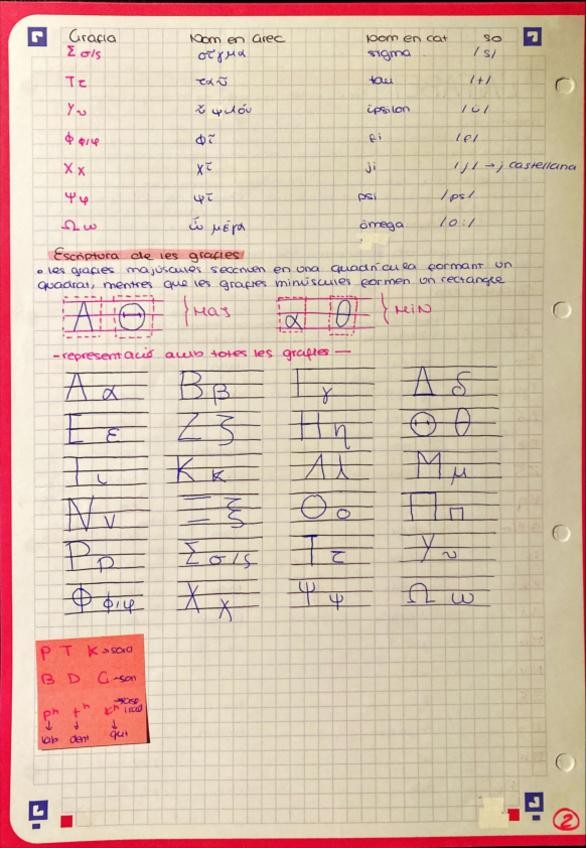 Grafia nom en grec nom en cat so
Σ σ/ς σῖγμα sigma /s/
Τ τ ταῦ tau /t/
Υ υ ὖ ψιλόν ípsilon /ü/
Φ φ/φ φῖ fi /f/
Χ χ χῖ ji /j/ → j castellana
Ψ ψ ψῖ psi /ps/
Ω ω ὦ μέγα omega /o:/
Escriptura de les grafies
• les grafies majúscules s'escriuen en una quadrícula formant un
quadrat, mentres que les grafies minúscules formen un rectangle
Α Θ } MAJ α θ } MIN
- representació amb totes les grafies —
Α α Β β Γ γ Δ δ
Ε ε Ζ ζ Η η Θ θ
Ι ι Κ κ Λ λ Μ μ
Ν ν Ξ ξ Ο ο Π π
Ρ ρ Σ σ/ς Τ τ Υ υ
Φ φ/φ Χ χ Ψ ψ Ω ω
P T K → sord
B D G → son
pʰ tʰ kʰ
↓ ↓ ↓
lab dent gut
2